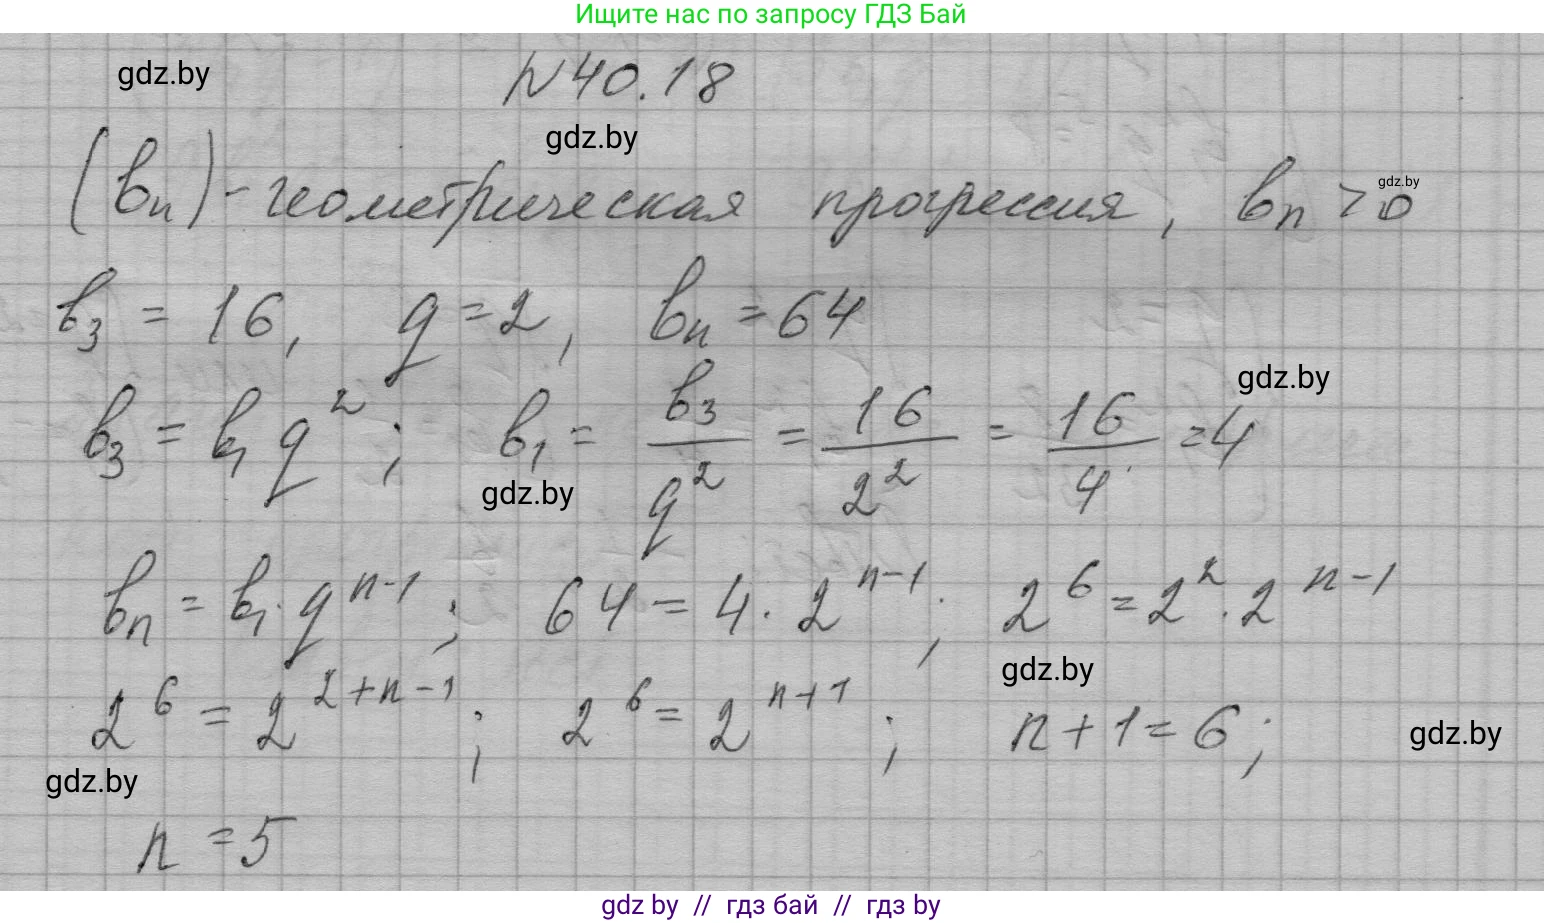 Ищите нас по запросу ГДЗ Бай
gdz.by
N 40.18
gdz.by
(bn) - геометрическая прогрессия, bn > 0
gdz.by
b₃ = 16, q = 2, bn = 64
gdz.by
b₃ = b₁ q²; b₁ = b₃/q² = 16/2² = 16/4 = 4
gdz.by
bn = b₁ · qⁿ⁻¹; 64 = 4 · 2ⁿ⁻¹; 2⁶ = 2² · 2ⁿ⁻¹
gdz.by
2⁶ = 2²⁺ⁿ⁻¹; 2⁶ = 2ⁿ⁺¹; n + 1 = 6;
gdz.by
gdz.by
n = 5
gdz by // гдз бай // гдз by